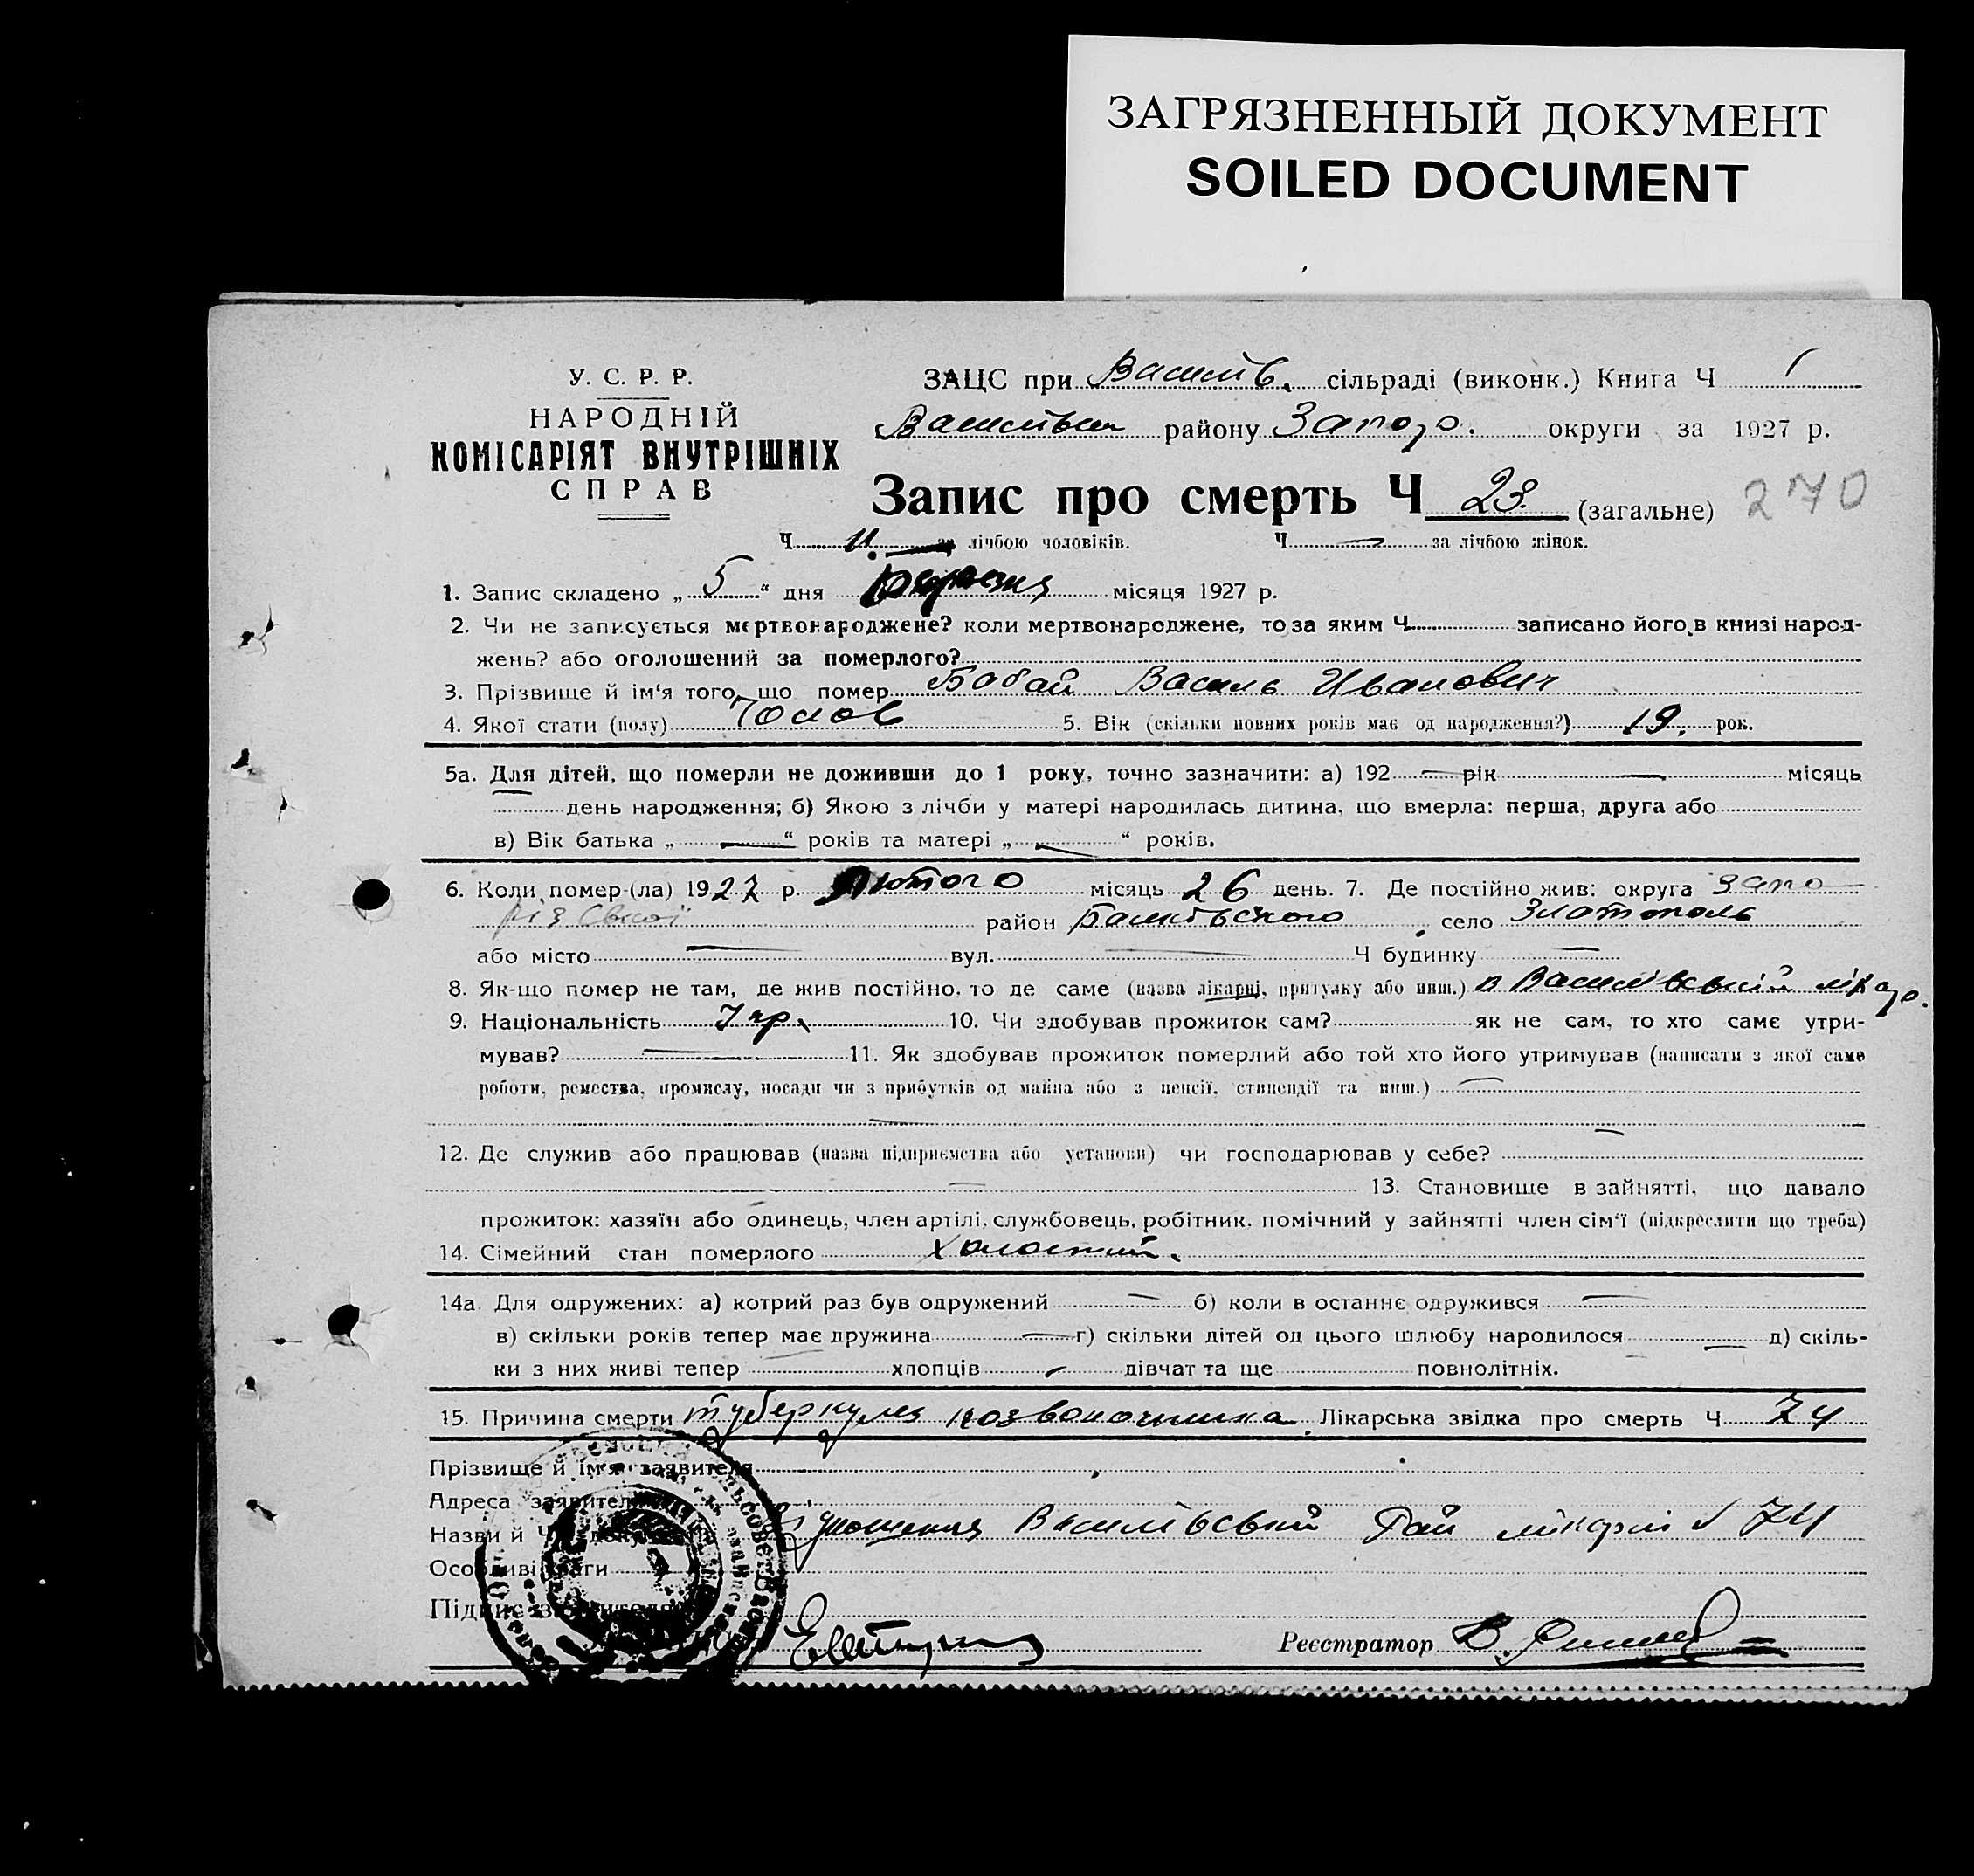 ЗАГРЯЗНЕННЫЙ ДОКУМЕНТ
SOILED DOCUMENT
У. С. Р. Р.
НАРОДНІЙ
КОМІСАРІЯТ ВНУТРІШНІХ
СПРАВ
ЗАЦС при Василів. сільраді (виконк.) Книга Ч 1
району Запор. округи за 1927 р.
Запис про смерть Ч 23. (загальне) 270
Ч 11. за лічбою чоловіків. Ч — за лічбою жінок.
1. Запис складено „ 5 “ дня Березня місяця 1927 р.
2. Чи не записується мертвонароджене? коли мертвонароджене, то за яким Ч. записано його в книзі народ-
жень? або оголошений за померлого?
3. Прізвище й ім'я того, що помер Бабай Василь Иванович
4. Якої стати (полу) Чолов 5. Вік (скільки повних років має од народження?) 19. рок.
5а. Для дітей, що померли не доживши до 1 року, точно зазначити: а) 192 — рік — місяць
— день народження; б) Якою з лічби у матері народилась дитина, що вмерла: перша, друга або
в) Вік батька „ — “ років та матері „ — “ років.
6. Коли помер-(ла) 1927 р. Лютого місяць 26 день. 7. Де постійно жив: округа Запо
різької район село Златополь
або місто — вул. — Ч будинку —
8. Як-що помер не там, де жив постійно, то де саме (назва лікарні, притулку або инш.) в Василівській лікар.
9. Національність Укр. 10. Чи здобував прожиток сам? як не сам, то хто саме утри-
мував? — 11. Як здобував прожиток померлий або той хто його утримував (написати з якої саме
роботи, ремества, промислу, посади чи з прибутків од майна або з пенсії, стипендії та инш.) —
—
12. Де служив або працював (назва підприємства або установи) чи господарював у себе? —
— 13. Становище в зайнятті, що давало
прожиток: хазяїн або одинець, член артілі, службовець, робітник, помічний у зайнятті член сім'ї (підкреслити що треба)
14. Сімейний стан померлого Холостий.
14а. Для одружених: а) котрий раз був одружений — б) коли в останнє одружився —
в) скільки років тепер має дружина — г) скільки дітей од цього шлюбу народилося — д) скіль-
ки з них живі тепер — хлопців — дівчат та ще — повнолітніх.
15. Причина смерти туберкулез позвоночника. Лікарська звідка про смерть Ч 74
Прізвище й ім'я заявителя
Адреса заявителя
Назви й Ч документів Василівської Рай лікарні № 74
Особливі уваги
Підпис заявителя
Реєстратор В.